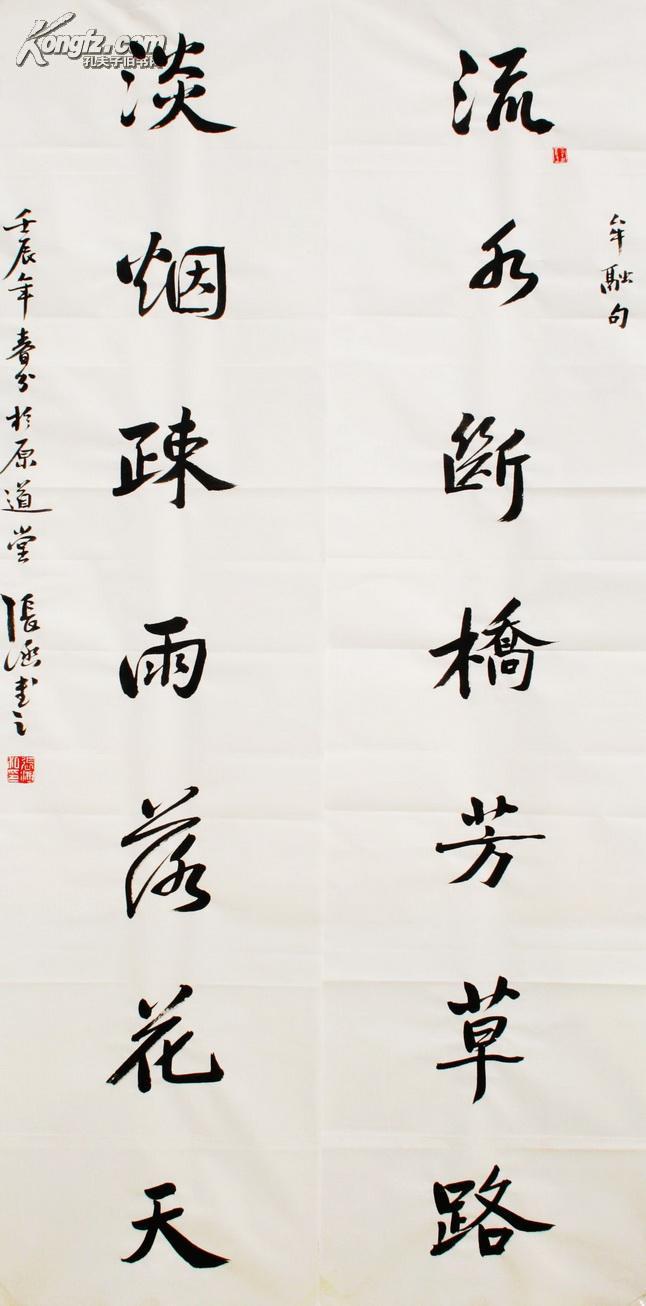 Kongfz.com
孔夫子旧书网
牟融句
流水斷橋芳草路
淡烟疎雨落花天
壬辰年春分於原道堂 張